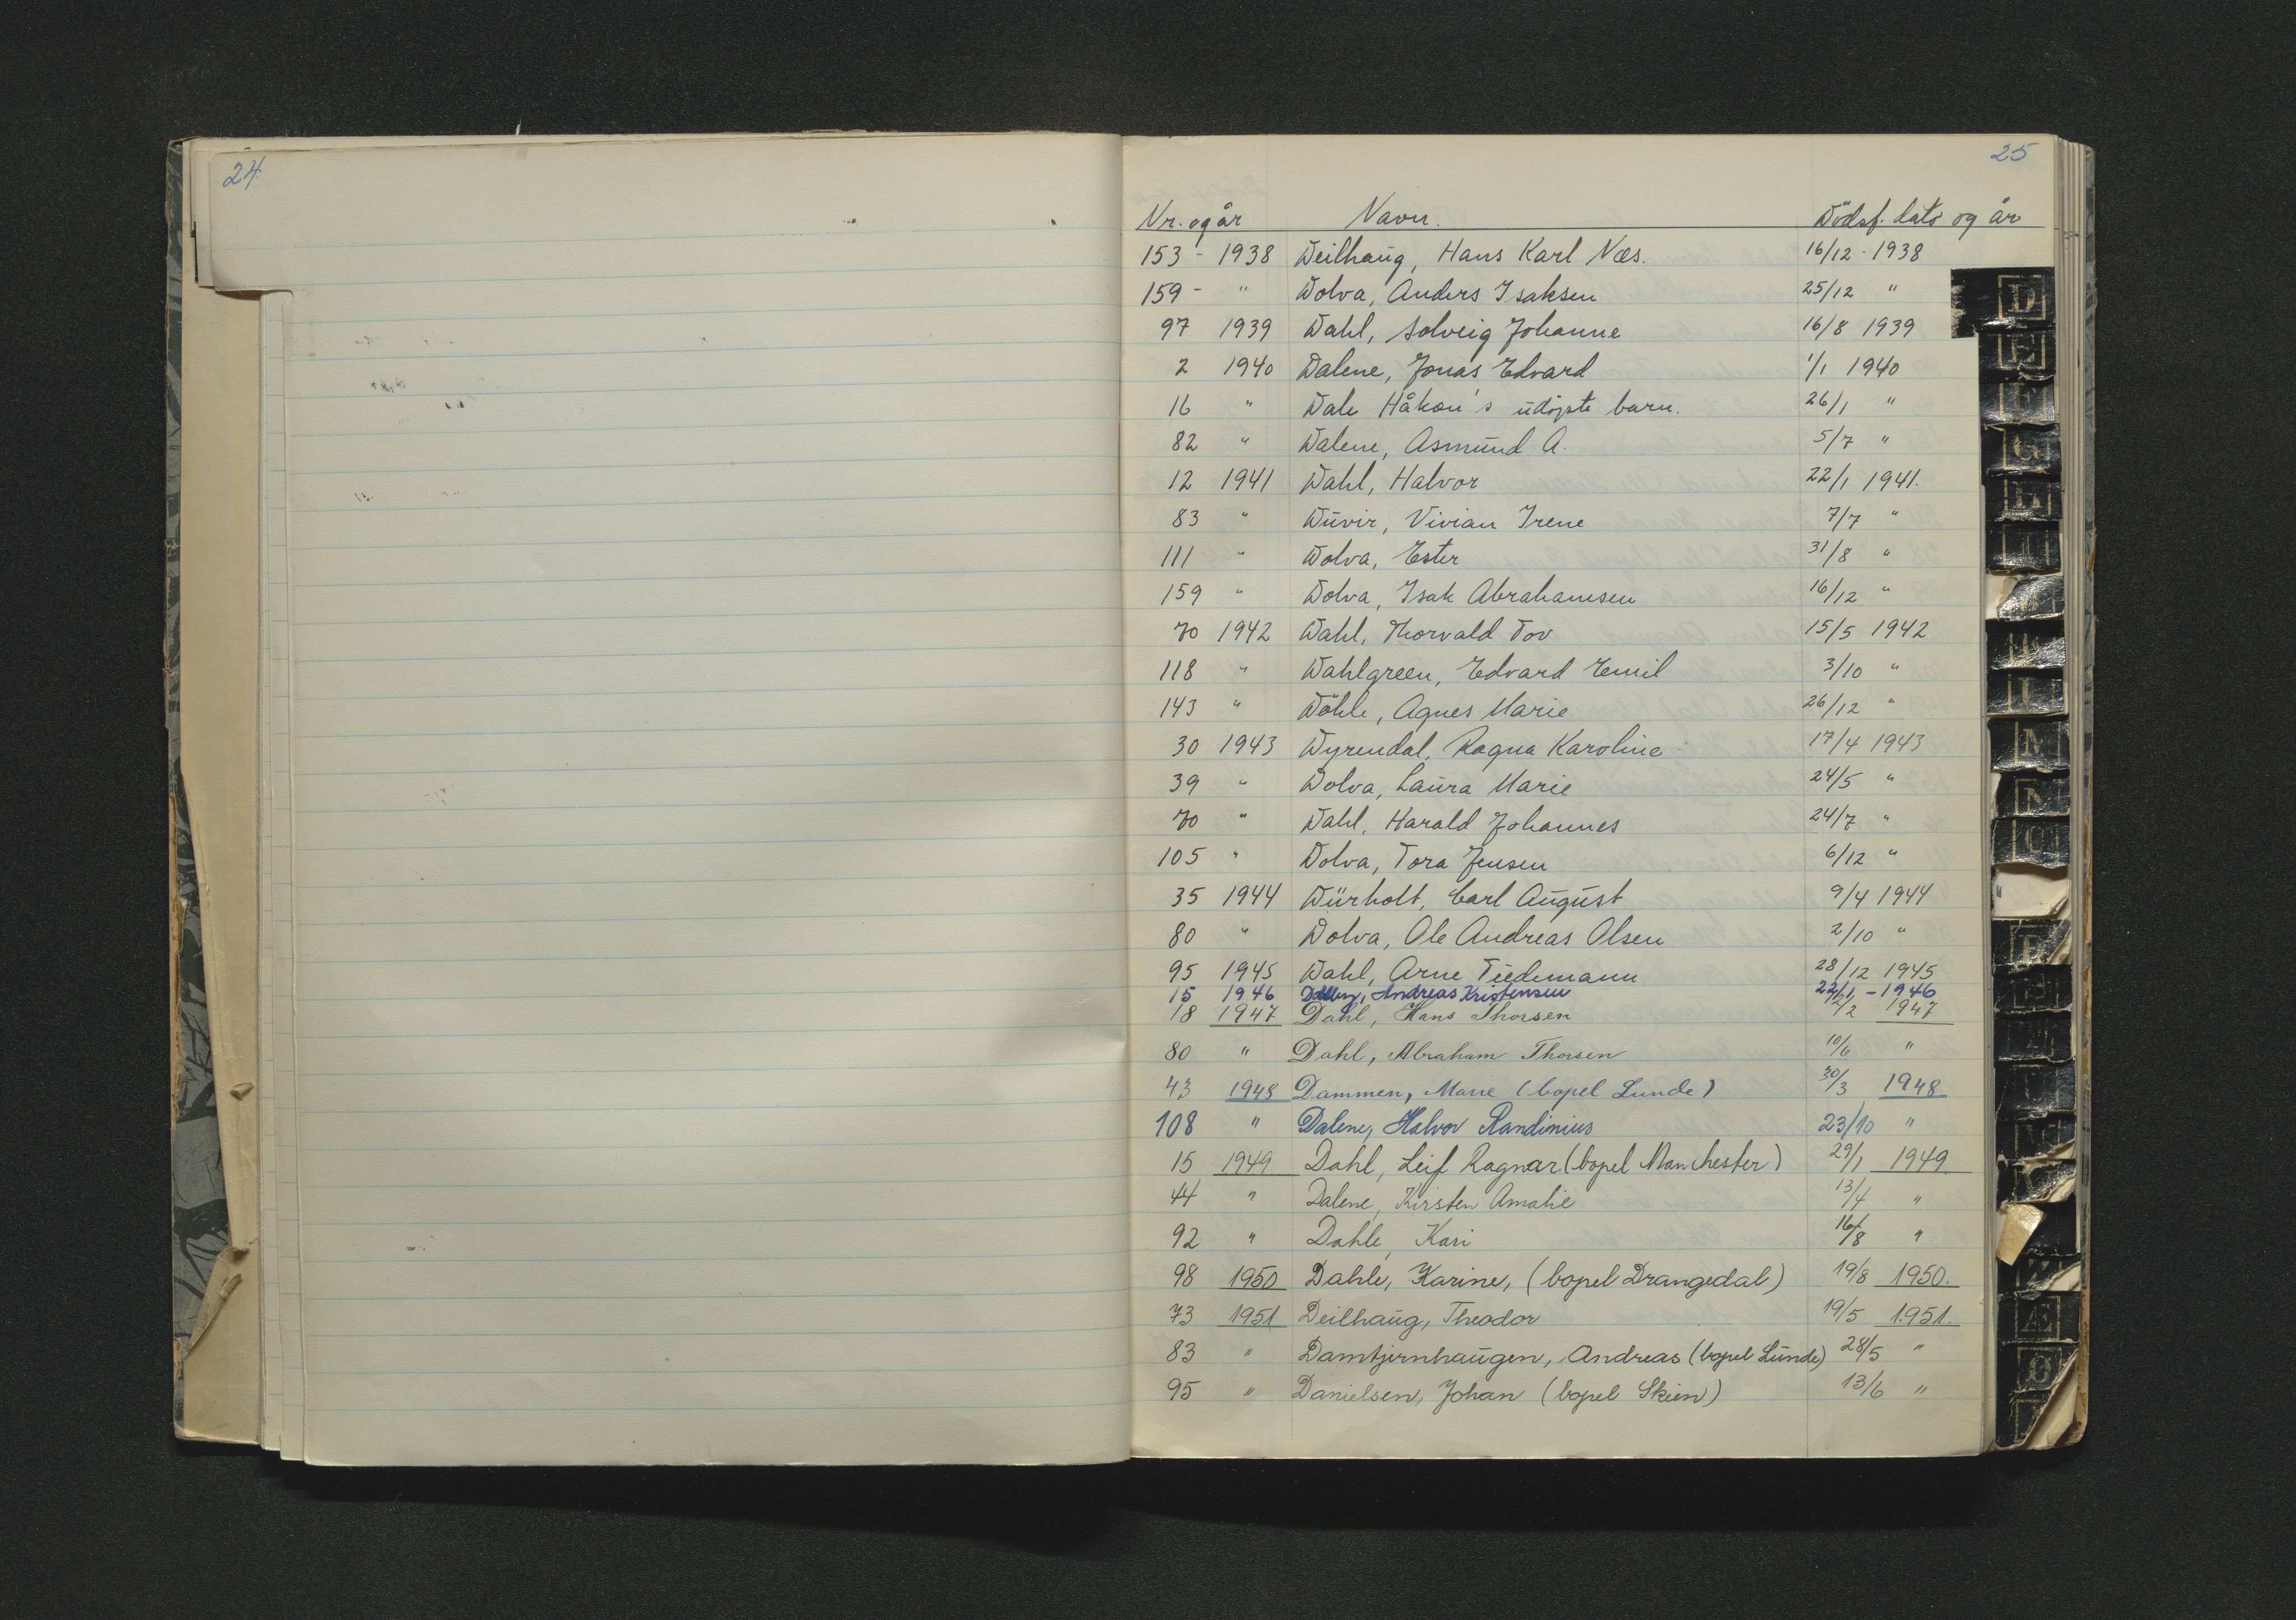 24
25
Nr. og år Navn. Dödsf. dato og år
153 - 1938 Deilhaug, Hans Karl Næs. 16/12 - 1938
159 - " Dolva, Anders Isaksen 25/12 "
97 1939 Dahl, Solveig Johanne 16/8 1939
2 1940 Dalene, Jonas Edvard 1/1 1940
16 " Dale Håkon's udöpte barn. 26/1 "
82 " Dalene, Asmund A. 5/7 "
12 1941 Dahl, Halvor 22/1 1941.
83 " Duvir, Vivian Irene 7/7 "
111 " Dolva, Ester 31/8 "
159 " Dolva, Isak Abrahamsen 16/12 "
70 1942 Dahl, Thorvald Tov 15/5 1942
118 " Dahlgreen, Edvard Emil 3/10 "
143 " Döhle, Agnes Marie 26/12 "
30 1943 Dyrendal, Ragna Karoline 17/4 1943
39 " Dolva, Laura Marie 24/5 "
70 " Dahl, Harald Johannes 24/7 "
105 " Dolva, Tora Jensen 6/12 "
35 1944 Dürholt, Carl August 9/4 1944
80 " Dolva, Ole Andreas Olsen 2/10 "
95 1945 Dahl, Arne Tiedemann 28/12 1945
15 1946 Andreas Kristensen 22/1 - 1946
18 1947 Dahl, Hans Thorsen 1947
80 " Dahl, Abraham Thorsen 10/6 "
43 1948 Dammen, Marie (bopel Lunde) 30/3 1948
108 " Dalene, Halvor Randinius 23/10 "
15 1949 Dahl, Leif Ragnar (bopel Manchester) 29/1 1949
44 " Dalene, Kirsten Amalie 13/4 "
92 " Dahle, Kari 16/8 "
98 1950 Dahle, Karine, (bopel Drangedal) 19/8 1950.
73 1951 Deilhaug, Theodor 19/5 1951.
83 " Damtjernhaugen, Andreas (bopel Lunde) 28/5 "
95 " Danielsen, Johan (bopel Skien) 13/6 "
D
E
F
G
H
I
L
M
N
O
P
Æ
Ø